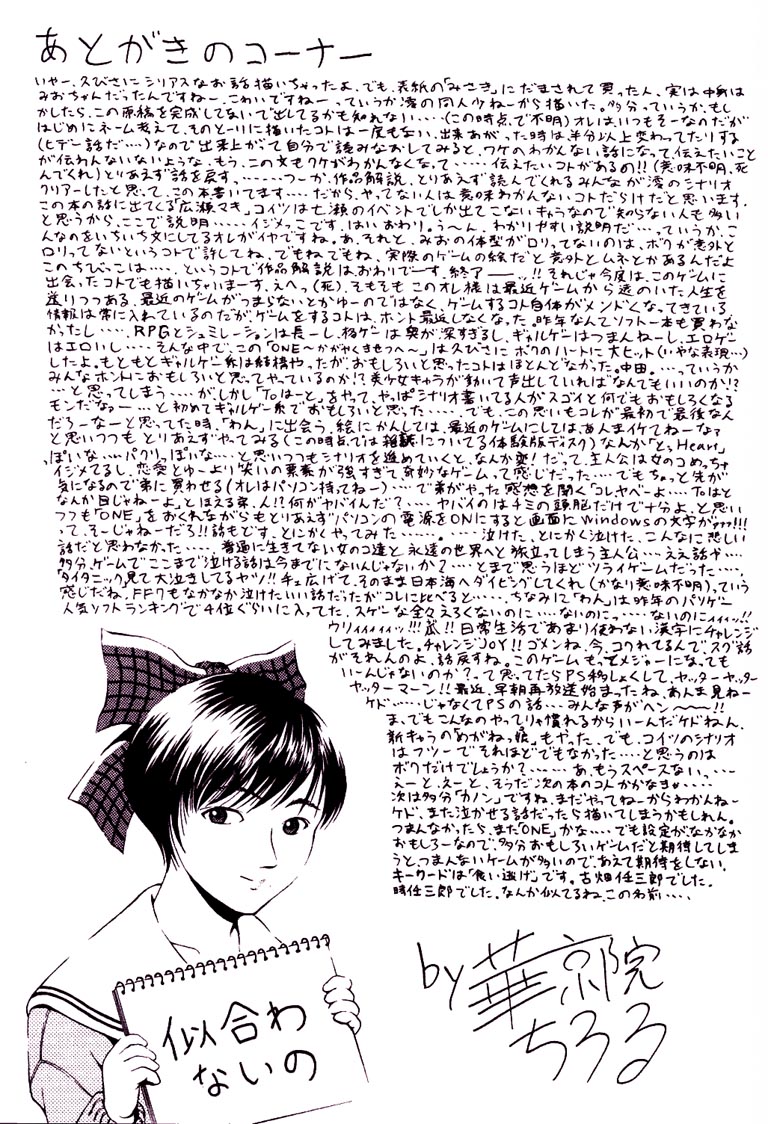 あとがきのコーナー
いやー、久びさにシリアスなお話描いちゃったよ、でも、表紙の「みさき」にだまされて買った人、実は中身は
みおちゃんだったんですねー、こわいですねー、っていうか澪の同人少ねーから描いた。多分っていうか、もし
かしたら、この原稿を完成してないで出してるかも知れない‥‥(この時点で不明)オレは、いつもそーなのだが
はじめにネーム考えて、そのとーりに描いたコトは一度もない、出来あがった時は半分以上変わってたりする
(ヒデー話だ‥‥)なので出来上がって自分で読みなおしてみると、ワケのわかんない話になって、伝えたいこと
が伝わんないないような、もう、この文もワケがわかんなくなって‥‥‥伝えたいコトがあるの!!(意味不明、死
んでくれ)とりあえず話を戻す、‥‥‥つーか、作品解説、とりあえず読んでくれるみんなが澪のシナリオ
クリアーしたと思って、この本書いてます‥‥だから、やってない人は意味わかんないコトだらけだと思います、
この本の話に出てくる「広瀬マキ」コイツは七瀬のイベントでしか出てこないキャラなので知らない人も多い
と思うから、ここで説明‥‥‥イジメっこです、はい、おわり。う〜ん、わかりやすい説明だ‥‥っていうか、こ
んなのをいちいち文にしてるオレがイヤですね。あ、それと、みおの体型がロリってないのは、ボクが意外と
ロリってないというコトで許してね、でもねでもね、実際のゲームの絵だと意外とムネとかあるんだよ
このちびっこは‥‥、というコトで作品解説はおわりでーす、終了ーーッ!!それじゃ今度は、このゲームに
出会ったコトでも描いちゃいまーす、えへっ(死)、そもそもこのオレ様は最近ゲームから遠のいた人生を
送りつつある、最近のゲームがつまらないとかゆーのではなく、ゲームするコト自体がメンドくなってきている
情報は常に入れているのだが、ゲームをするコトは、ホント最近しなくなった、昨年なんてソフト一本も買わな
かったし‥‥、RPGとシュミレーションは長ーし、格ゲーは奥が深すぎるし、ギャルゲーはつまんねーし、エロゲー
はエロいし‥‥そんな中で、この「ONE〜かがやくきせつへ〜」は久びさにボクのハートに大ヒット(いやな表現‥)
したよ。もともとギャルゲー系は結構やったが、おもしろいと思ったコトはほとんどなかった。中田‥‥っていうか
みんなホントにおもしろいと思ってやっているのか!?美少女キャラが動いて声出していればなんでもいいのか!?
‥と思ってしまう‥‥がしかし「Toはーと」をやって、やっぱシナリオ書いてる人がスゴイと何でもおもしろくなる
モンだなぁー‥と初めてギャルゲー系でおもしろいと思った‥‥‥でも、この思いもコレが最初で最後なん
だろーなーと思ってた時、「わん」に出会う、絵にかんしては、最近のゲームにしてはあんまイケてねーなァ
と思いつつもとりあえずやってみる(この時点では雑誌についてる体験版ディスク)なんか「とぅHeart」
っぽいな‥‥パクリっぽいな‥‥と思いつつもシナリオを進めていくと、なんか変!だって、主人公は女のコめっちゃ
イジメてるし、恋愛とゆーより笑いの要素が強すぎて奇妙なゲームって感じだった‥‥でもちょっと先が
気になるので弟に買わせる(オレはパソコン持ってねー)‥‥で弟がやった感想を聞く「コレヤベーよ‥‥Toはと
なんか目じゃねーよ」とほえる弟、ん!?何がヤバイんだ?‥‥、ヤバイのはチミの頭脳だけで十分よ、と思い
つつも「ONE」をおくれながらもとりあえずパソコンの電源をONにすると画面にWindowsの文字がァァァ!!!
って、そーじゃねーだろ!!話もどす、とにかくやってみた‥‥‥。‥‥泣けた、とにかく泣けた、こんなに悲しい
話だと思わなかった‥‥‥、普通に生きてない女のコ達と永遠の世界へと旅立ってしまう主人公‥‥ええ話や‥‥
多分、ゲームでここまで泣ける話は今までにないんじゃないか?‥‥とまで思うほどツライゲームだった‥‥、
「タイタニック」見て大泣きしてるヤツ!!チェ広げて、そのまま日本海へダイビングしてくれ(かなり意味不明)っていう
感じだね、FF7もなかなか泣けたいい話だったがコレに比べると‥‥、ちなみに「わん」は昨年のパソゲー
人気ソフトランキングで4位ぐらいに入ってた、スゲーな全々えろくないのに‥‥ないのにっ‥‥ないのにィィィッ!!
ウリィィィィィッ!!!瓜!!日常生活であまり使わない漢字にチャレンジ
してみました。チャレンジJOY!!ゴメンね、今、コワれてるんでスグ話
がそれんのよ、話戻すね。このゲームもってメジャーになっても
いーんじゃないのか?、って思ってたらPS移しょくして、ヤッターヤッター
ヤッターマーン!!最近、早朝再放送始まったね、あんま見ねー
ケド‥‥じゃなくてPSの話‥‥みんな声がヘン〜〜〜!!
ま、でもこんなのやってりゃ慣れるからいーんだケドねん、
新キャラのめがねっ娘もやった、でも、コイツのシナリオ
はフツーでそれほどでもなかった‥‥と思うのは
ボクだけでしょうか?‥‥‥あ、もうスペースない、‥‥
えーと、えーと、そうだ次の本のコトかかなきゃ‥‥‥
次は多分「カノン」ですね、まだやってねーからわかんねー
ケド、また泣かせる話だったら描いてしまうかもしれん。
つまんなかったら、また「ONE」かな‥‥でも設定がなかなか
おもしろーなので、多分おもしろいゲームだと期待してしま
うと、つまんないゲームが多いので、あえて期待をしない、
キーワードは「食い逃げ」です。古畑任三郎でした。
時任三郎でした。なんか似てるね、この名前‥‥、
by華京院
ちろる
似合わ
ないの